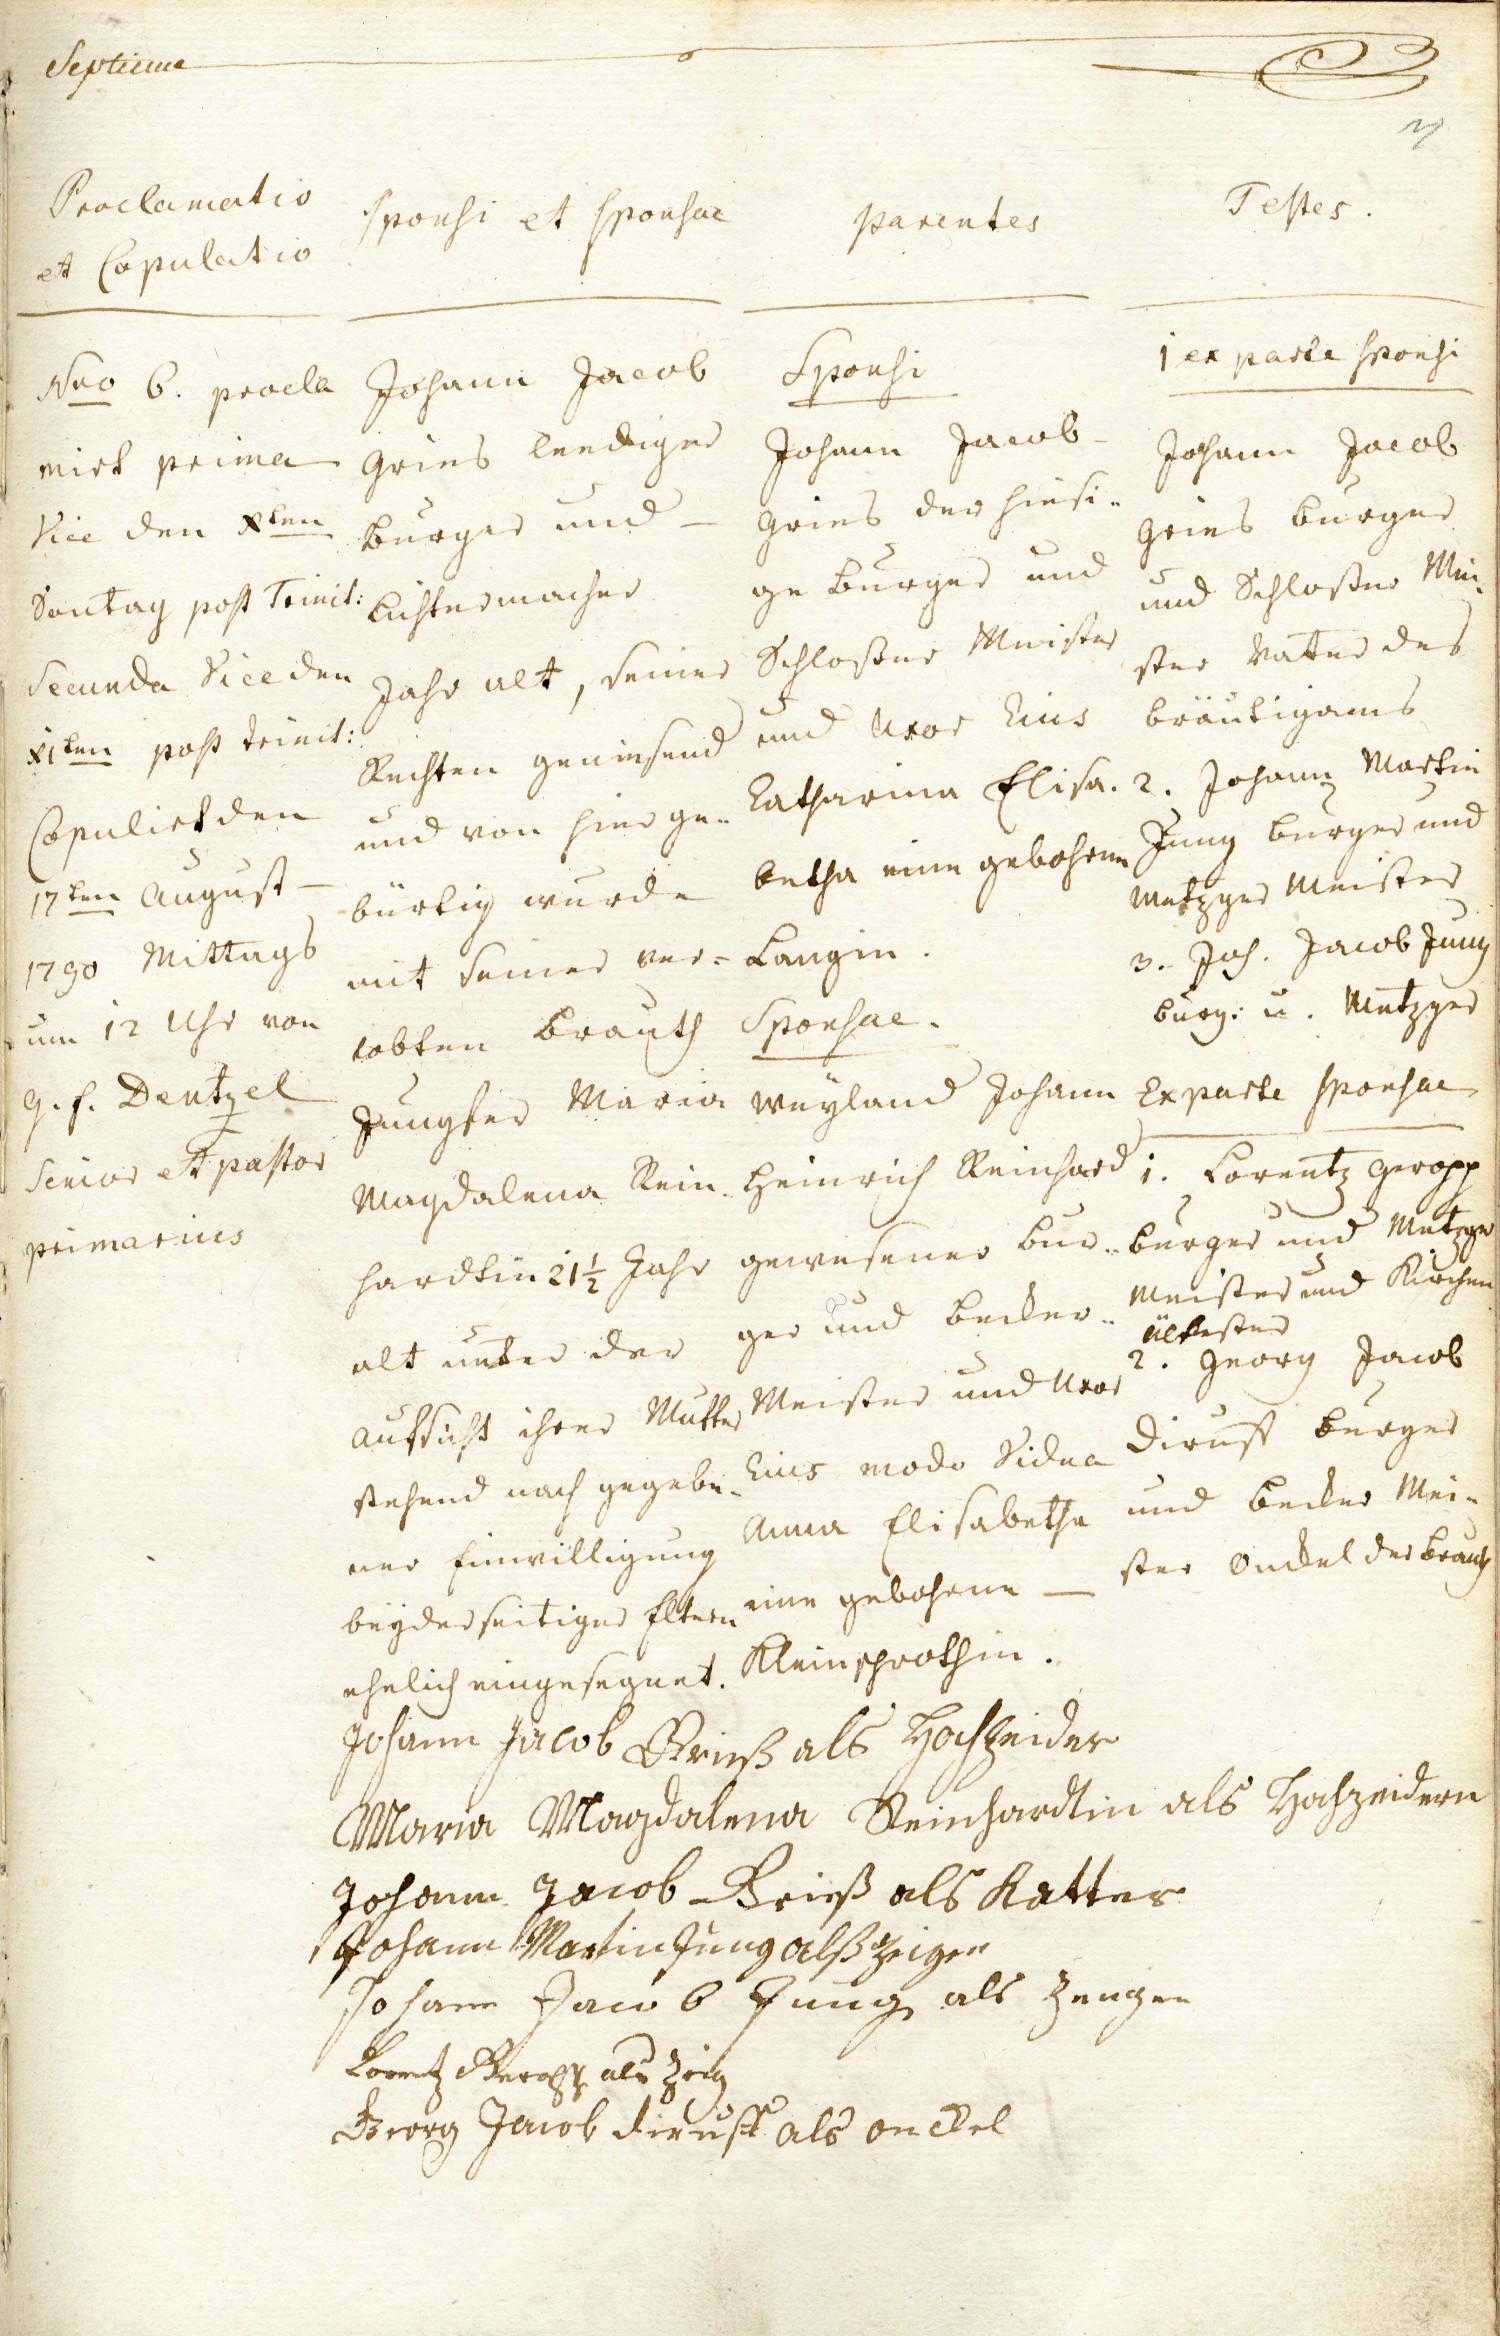 Septieme
Proclamatio
et Copulatio
Sponsi et Sponsae
parentes
Testes.
Nro 6. procla
mirt prima
Vice den Xten
Sontag post Trinit:
Secunda Vice den
XIten post Trinit:
Copulirt den
17ten August
1790 Mittags
um 12 Uhr von
G. F. Dentzel
Senior et pastor
primarius
Johann Jacob
Gries leediger
Burger und
Lichtermacher
Jahr alt, seiner
Rechten geniesend
und von hier ge-
bürtig wurde
mit seiner ver-
lobten Brauth
Jungfer Maria
Magdalena Rein-
hardtin 21 1/2 Jahr
alt unter der
Aufsicht ihrer Mutter
stehend nach gegebe-
ner Einwilligung
beyderseitiger Eltern
ehelich eingesegnet.
Sponsi
Johann Jacob
Gries der hiesi-
ge Burger und
Schlosser Meister
und Uxor Eius
Catharina Elisa-
betha eine gebohrne
Langin.
Sponsae.
Weyland Johann
Heinrich Reinhard
gewesener Bur-
ger und Becker-
Meister und Uxor
Eius modo Vidua
Anna Elisabetha
eine gebohrne
Kleinsprothin.
1 ex parte Sponsi
Johann Jacob
Gries Burger
und Schlosser Mei-
ster Vater des
Bräutigams
2. Johann Martin
Jung Burger und
Metzger Meister
3. Joh. Jacob Jung
Burg: u. Metzger
Ex parte Sponsae
1. Lorentz Geropp
Burger und Metzger
Meister und Kirchen
ältester
2. Georg Jacob
Diruff Burger
und Becker Mei-
ster Onckel der Brauth
Johann Jacob Grieß als Hochzeider
Maria Magdalena Reinhardtin als Hochzeidern
Johann Jacob Grieß als Vatter
Johann Martin Jung alß Zeigen
Johann Jacob Jung als Zeugen
Lorentz Geropp als Zeig
Georg Jacob Diruff als onckel